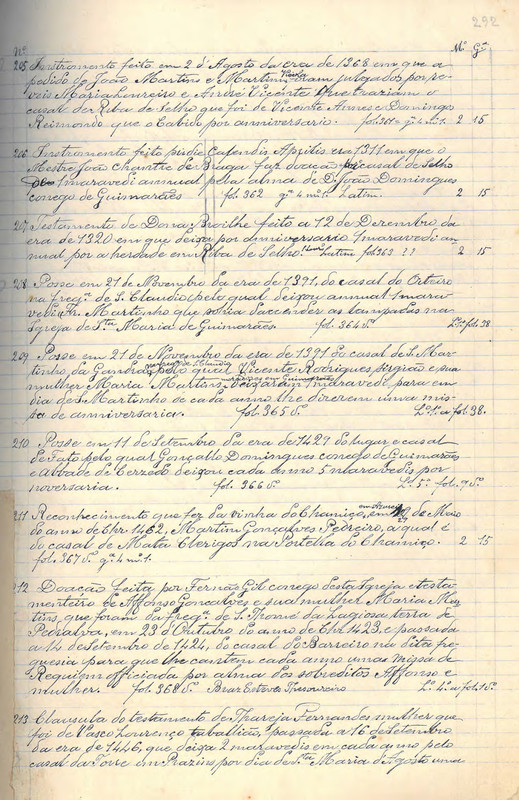 292
Nº Mº Gª
205 Instromento feito em 2 d'Agosto da era de 1368 em que a
pedido de João Martins e Martim Vieira foram julgados por re-
veis Maria Loureiro e André Vicente que traziam o
casal de Riba de Selho que foi de Vicente Annes e Domingo
Reimondo que o Cabido por anniversario. fol. 361 gª 4 nº 1. 2 15
206 Instromento feito pridie Calendis Aprilis era 1311 em que o
Mestre João Chantre de Braga faz doação casal de Selho
1 maravedi annual pela alma de D. João Domingues
conego de Guimarães fol. 362 gª 4 nº 1. Latim. 2 15
207 Testamento de Dona Broilhe feito a 12 de Dezembro da
era de 1320 em que deixa por anniversario 1 maravedi an-
nual por a herdade em Riba de Selho Latim fol 363 2 15
208 Posse em 21 de Novembro da era de 1391, do casal do Orteiro
na fregª de S. Claudio pelo qual deixou annual 1 mara-
vedi Fr. Martinho que para accender as lampadas na
Igreja de Sta Maria de Guimarães. fol. 364 vº Lº 1º fol. 38.
209 Posse em 21 de Novembro da era de 1391 do casal de S. Mar-
tinho da Gandra na freg. de S. Claudio pelo qual Vicente Rodrigues sirgião e sua
mulher Maria Martins deixaram 1 maravedi para em
dia de S. Martinho de cada anno lhe dizerem uma mis-
sa de anniversaria. fol. 365 vº Lº 1º a fol 38.
210 Posse em 11 de Setembro da era de 1427 do lugar e casal
de Fato pelo qual Gonçalo Domingues conego de Guimarães
e Abbade de Cerzedo deixou cada anno 5 maravedis por
noversaria. fol. 366 vº Lº 5º fol. 7 vº
211 Reconhecimento que fez da vinha do Chamiço, em de Maio
do anno de Chr 1462, Martim Gonçalves Pedreiro, a qual é
do casal de Mata Clerigos na Portella do Chamiço. 2 15
fol. 367 vº gª 4 nº 1.
212 Doação feita por Fernão Gil conego desta Igreja e testa-
menteiro de Affonso Gonçalves e sua mulher Maria Mar-
tins, que foram da fregª de S. Thomé da Lagiosa terra de
Pedralva, em 23 d'Outubro do anno de Chr 1423, e passada
a 14 de Setembro de 1424, do casal do Barreiro na dita fre-
guesia para que lhe cantem cada anno umas missa de
Requiem officiada por alma dos sobreditos Affonso e
mulher. fol. 368 vº Braz Esteves Thesoureiro Lº 4º a fol 1 vº
213 Clausula do testamento de Thareja Fernandes mulher que
foi de Vasco Lourenço tabaliião, passada a 16 de Setembro
da era de 1446, que deixa 2 maravedis em cada anno pelo
casal da Torre em Prazins por dia de Sta Maria d'Agosto uma